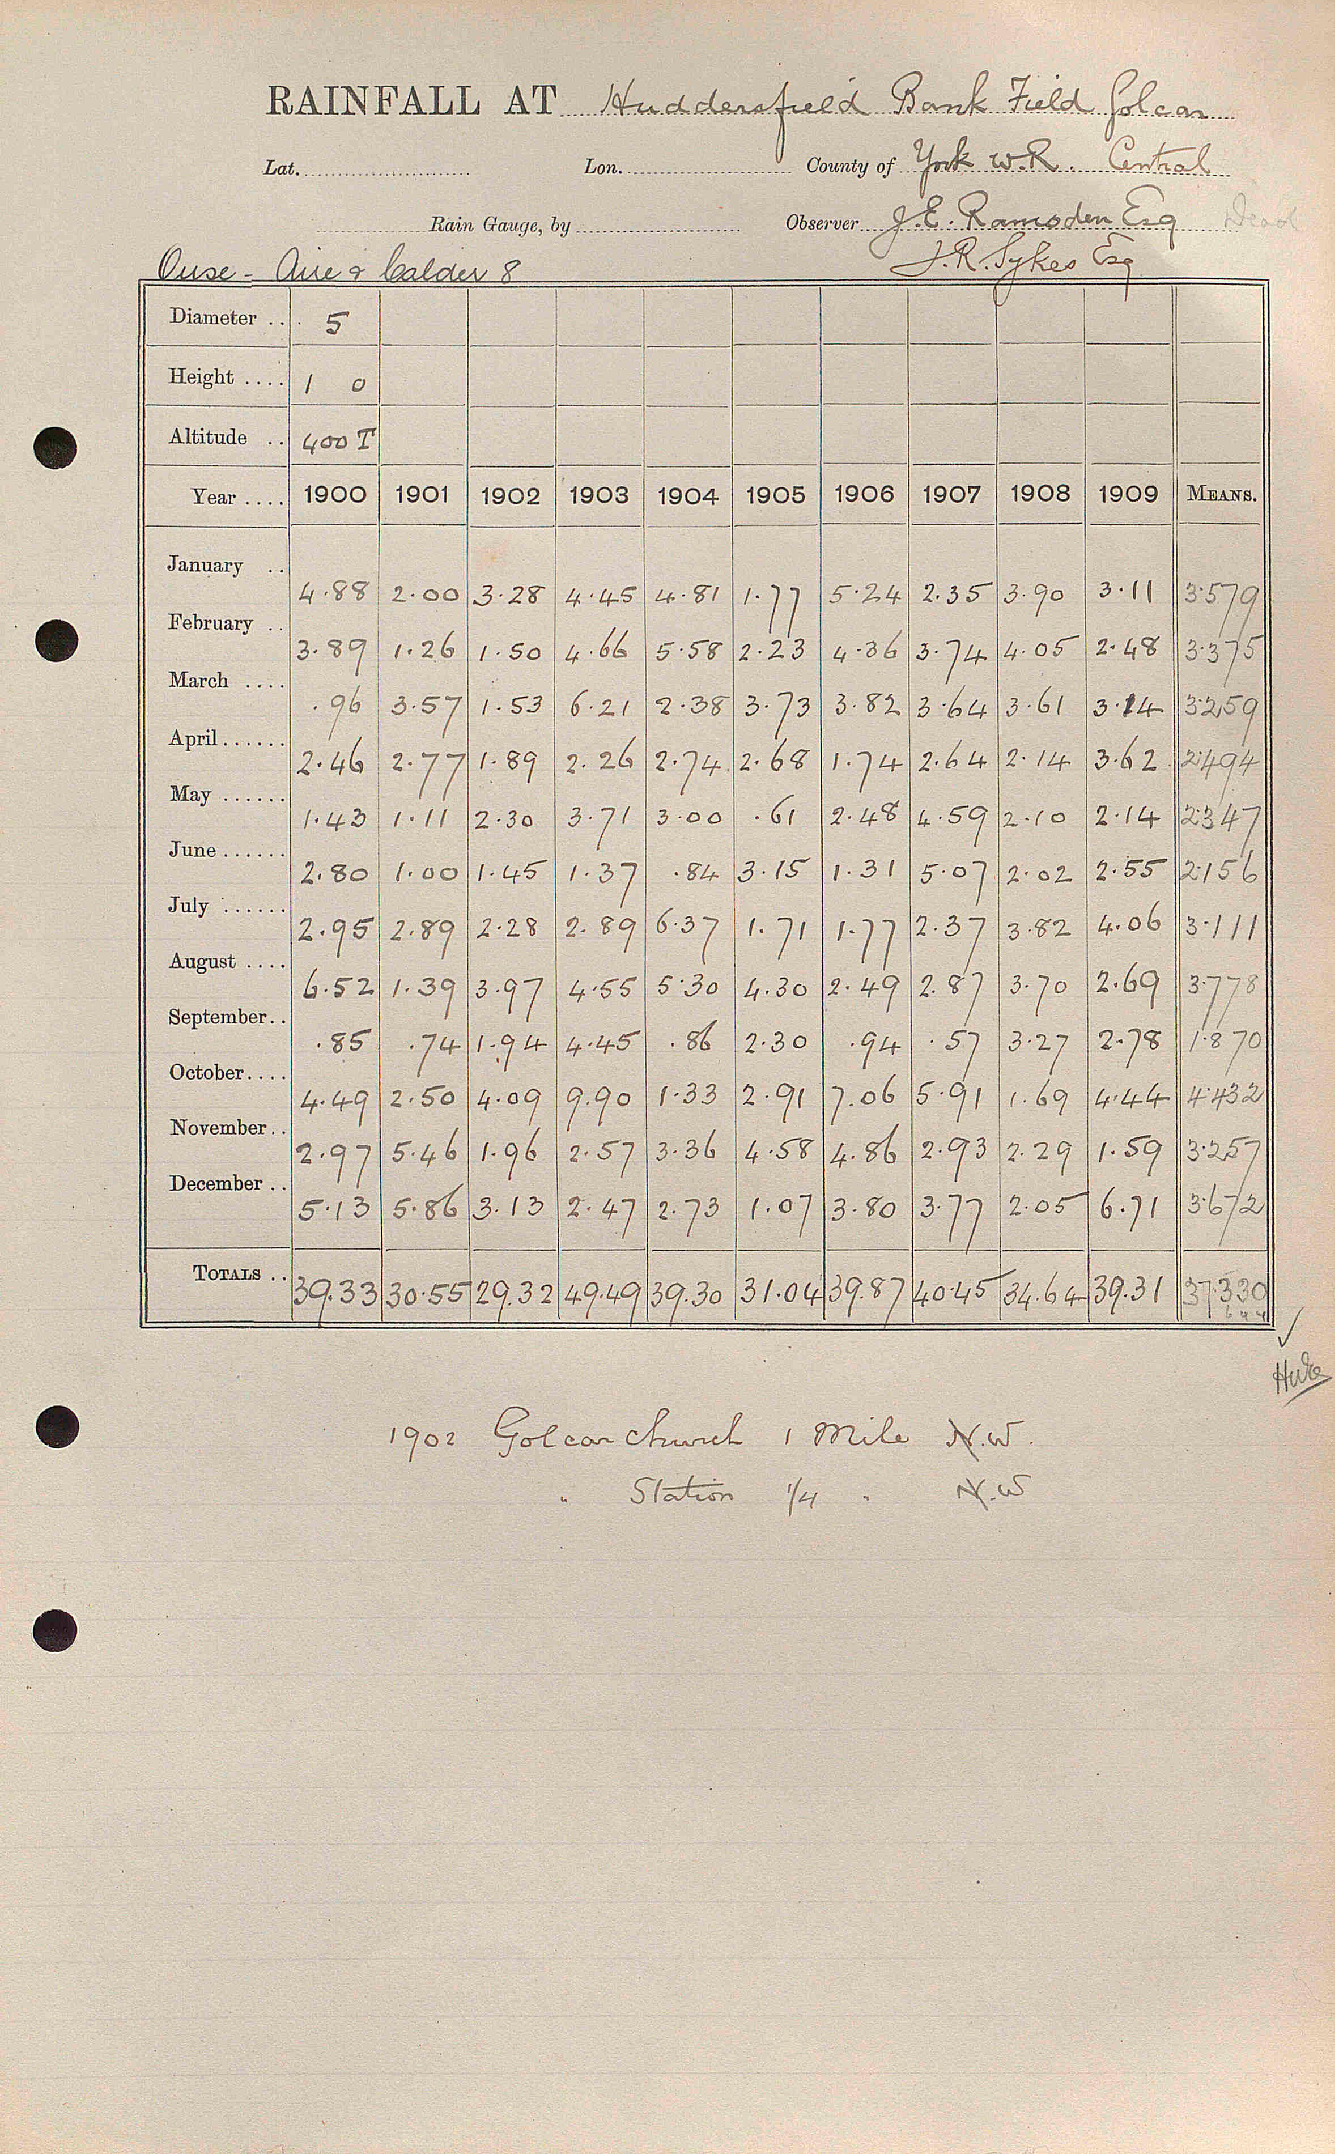 RAINFALL AT Huddersfield Bank Field Golcar
Lat. Lon. County of York W.R. Central
Rain Gauge, by Observer J.E. Ramsden Esq Dead
Ouse - Aire & Calder 8 J.R. Sykes Esq
Diameter . . . 5
Height .... 1 0
Altitude .. 400 T
Year .... 1900 1901 1902 1903 1904 1905 1906 1907 1908 1909 MEANS.
January .. 4.88 2.00 3.28 4.45 4.81 1.77 5.24 2.35 3.90 3.11 3.579
February .. 3.89 1.26 1.50 4.66 5.58 2.23 4.36 3.74 4.05 2.48 3.375
March .... .96 3.57 1.53 6.21 2.38 3.73 3.82 3.64 3.61 3.14 3.259
April...... 2.46 2.77 1.89 2.26 2.74 2.68 1.74 2.64 2.14 3.62 2.494
May ...... 1.43 1.11 2.30 3.71 3.00 .61 2.48 4.59 2.10 2.14 2.347
June ...... 2.80 1.00 1.45 1.37 .84 3.15 1.31 5.07 2.02 2.55 2.156
July ...... 2.95 2.89 2.28 2.89 6.37 1.71 1.77 2.37 3.82 4.06 3.111
August .... 6.52 1.39 3.97 4.55 5.30 4.30 2.49 2.87 3.70 2.69 3.778
September.. .85 .74 1.94 4.45 .86 2.30 .94 .57 3.27 2.78 1.870
October.... 4.49 2.50 4.09 9.90 1.33 2.91 7.06 5.91 1.69 4.44 4.432
November.. 2.97 5.46 1.96 2.57 3.36 4.58 4.86 2.93 2.29 1.59 3.257
December .. 5.13 5.86 3.13 2.47 2.73 1.07 3.80 3.77 2.05 6.71 3.672
TOTALS .. 39.33 30.55 29.32 49.49 39.30 31.04 39.87 40.45 34.64 39.31 37.330
1902 Golcar Church 1 Mile N.W.
" Station 1/4 " N.W